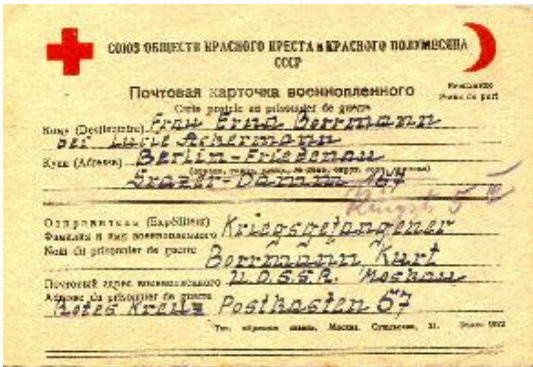 СОЮЗ ОБЩЕСТВ КРАСНОГО КРЕСТА и КРАСНОГО ПОЛУМЕСЯЦА
СССР
Почтовая карточка военнопленного
Carte postale du prisonnier de guerre
Бесплатно
Franc de port
Кому (Destinataire) Frau Erna Borrmann
bei Lucie Ackermann
Куда (Adresse) Berlin-Friedenau
Grazer-Damm 187
Отправитель (Expéditeur) Kriegsgefangener
Фамилия и имя военнопленного
Nom du prisonnier de guerre Borrmann Kurt
Почтовый адрес военнопленного U.D.S.S.R. Moskau
Adresse du prisonnier de guerre Rotes Kreuz Postkasten 57